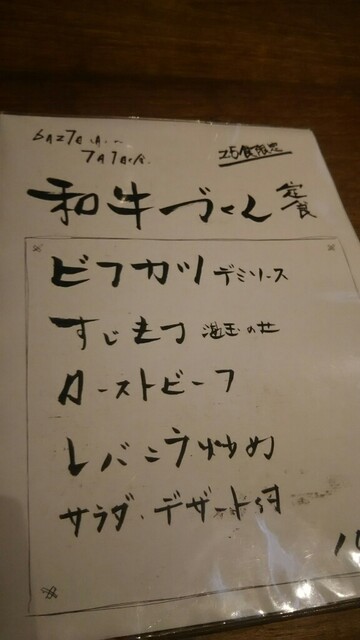 6月27日(月)~
7月1日(金)
25食限定
和牛づくし定食
ビフカツ デミソース
すじもつ 温玉のせ
ローストビーフ
レバニラ炒め
サラダ・デザート付